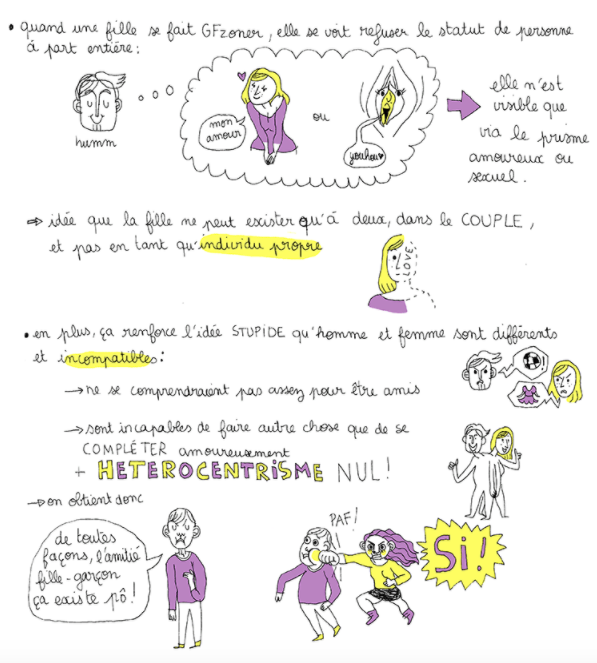 • quand une fille se fait GFzoner, elle se voit refuser le statut de personne
à part entière :
humm
mon
amour
ou
youhou♥
elle n'est
visible que
via le prisme
amoureux ou
sexuel.
⇒ idée que la fille ne peut exister qu'à deux, dans le COUPLE,
et pas en tant qu'individu propre
LOVE
• en plus, ça renforce l'idée STUPIDE qu'homme et femme sont différents
et incompatibles :
→ ne se comprendraient pas assez pour être amis
!
→ sont incapables de faire autre chose que de se
COMPLÉTER amoureusement
+ HETEROCENTRISME NUL !
→ on obtient donc
de toutes
façons, l'amitié
fille-garçon
ça existe pô !
PAF !
Si !